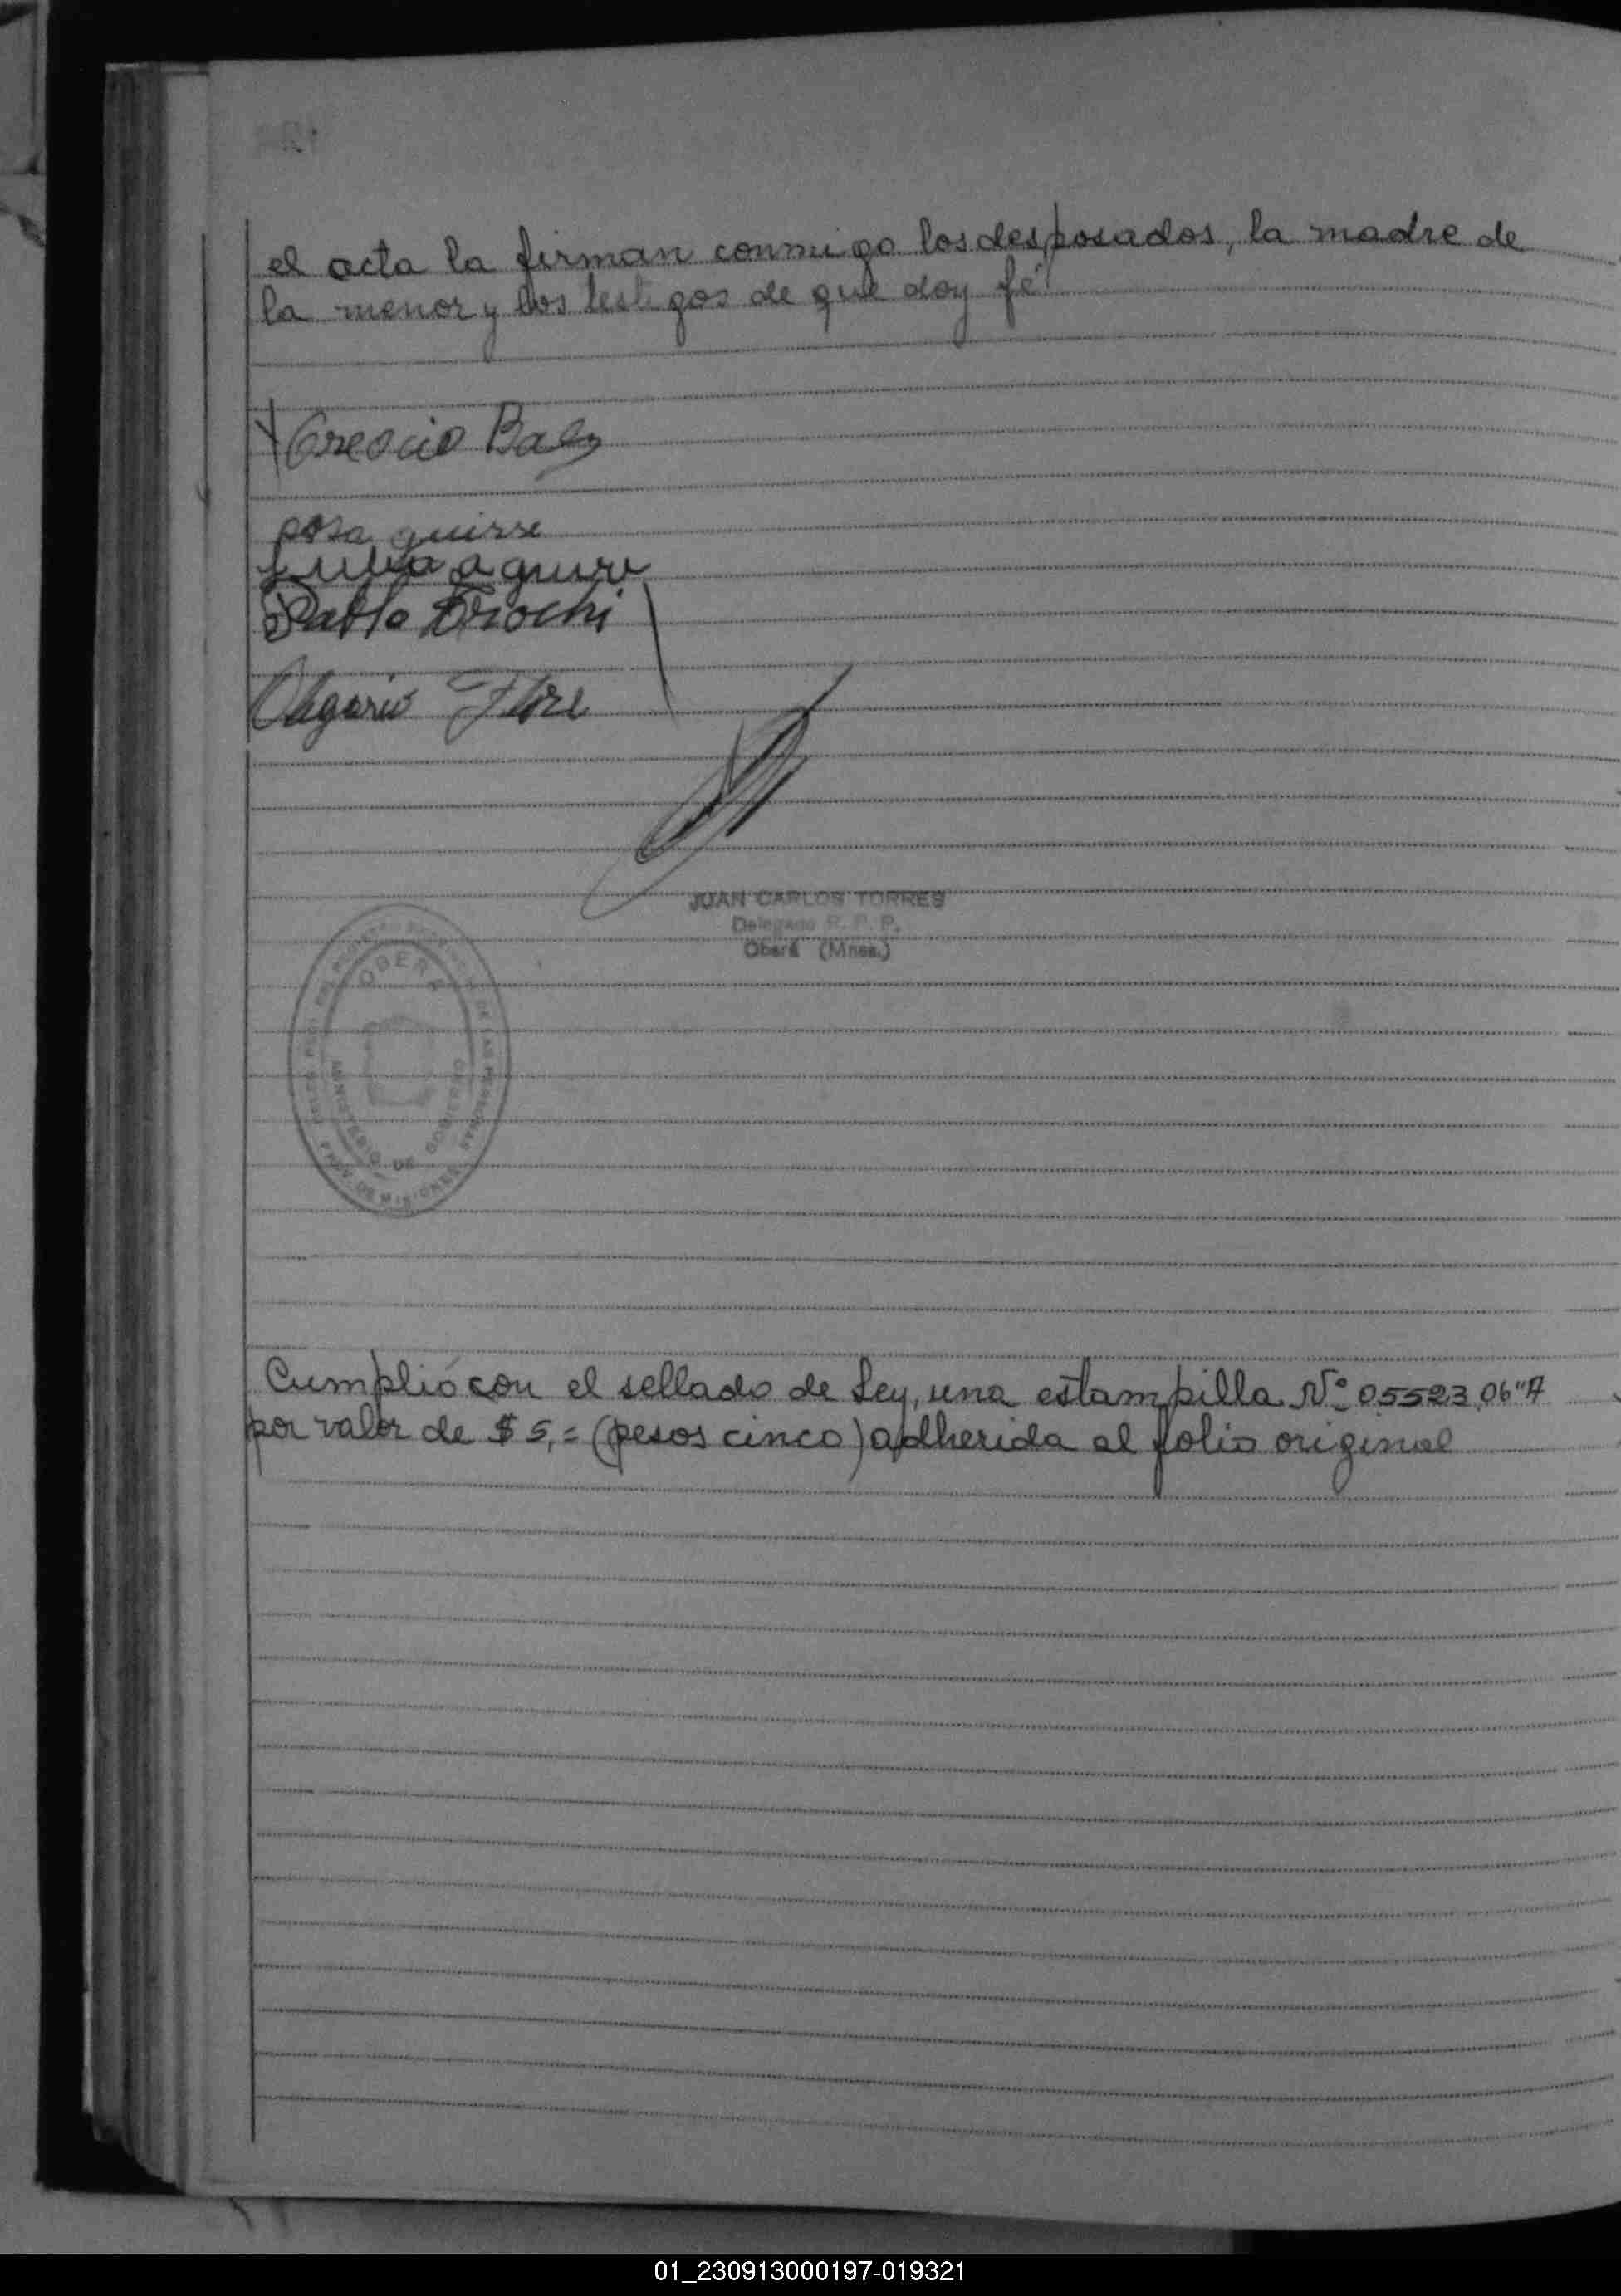 el acta la firman conmigo los desposados, la madre de
la menor y los testigos de que doy fé!
Crescio Baez
rosa guirre
Julia aguirre
Pablo Trochi
Olegario Flore
JUAN CARLOS TORRES
Delegado R. P. P.
Oberá (Mnes.)
OBERA
MINISTERIO DE GOBIERNO
PROV. DE MISIONES
DE LAS PERSONAS
Cumplió con el sellado de Ley, una estampilla Nº 05523,06"A
por valor de $ 5,= (pesos cinco) adherida al folio original
01_230913000197-019321